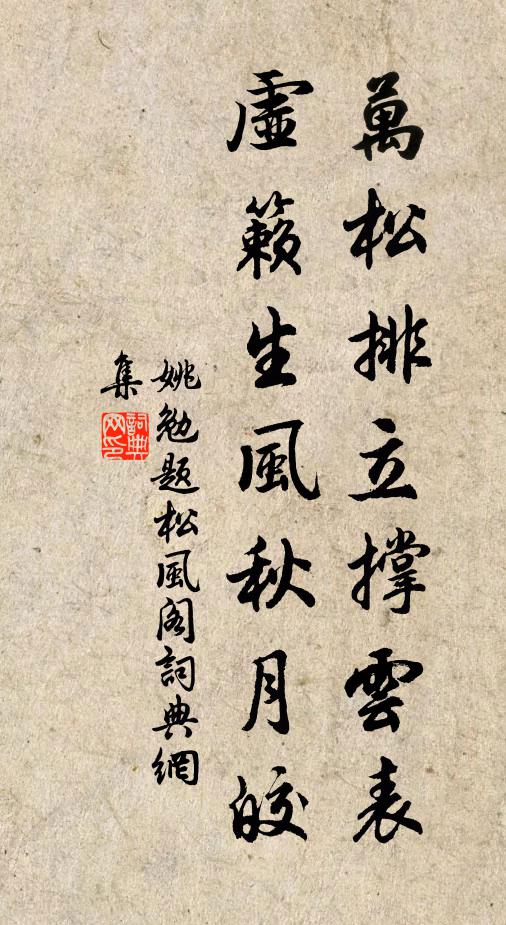 萬松排立撐雲表
虛籟生風秋月皎
姚勉題松風閣詞典網
集
詞典
网印